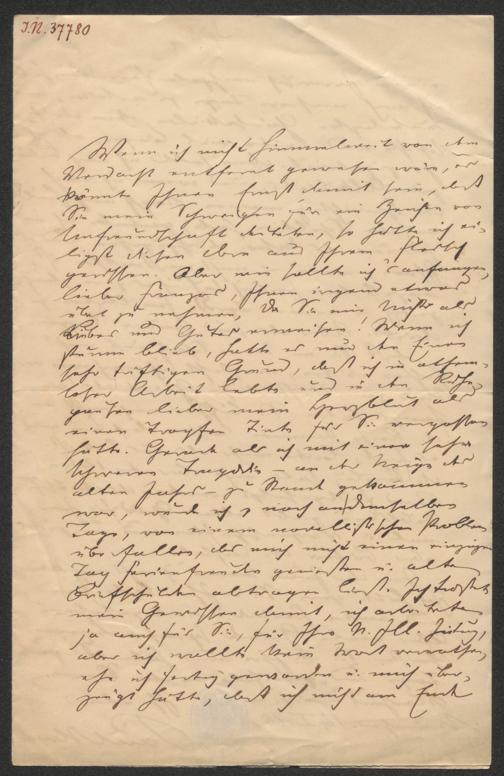 I.N. 37780
Wenn ich nicht himmelweit von dem
Verdacht entfernt gewesen wäre, es
könnte Ihnen Ernst damit sein, daß
Sie mein Schweigen für ein Zeichen von
Unfreundschaft deuteten, so hätte ich ei-
ligst diesen aus Ihrem Fleisch
gerissen. Aber wie sollte ich's anfangen,
lieber Franzos, Ihnen irgend etwas
übel zu nehmen, da Sie mir nichts als
Liebes und Gutes erweisen! Wenn ich
stumm blieb, hatte es nur den Einen
sehr triftigen Grund, daß ich in athem-
loser Arbeit lebte und in den Ruhe-
pausen lieber mein Herzblut als
einen Tropfen Tinte für Sie vergossen
hätte. Gerade als ich mit einer sehr
schweren Tragödie – an der Neige des
alten Jahres – zu Stand gekommen
war, wurde ich noch an demselben
Tage, von einem novellistischen Problem
überfallen, das mich nicht einen einzigen
Tag Ferienfreude genießen u. alte
Briefschulden abtragen ließ. Ich tröstete
mein Gewissen damit, ich arbeitete
ja auch für Sie, für Ihre N. Ill. Zeitung,
aber ich wollte kein Wort verrathen,
ehe ich fertig geworden u. mich über-
zeugt hätte, daß ich nicht am Ende